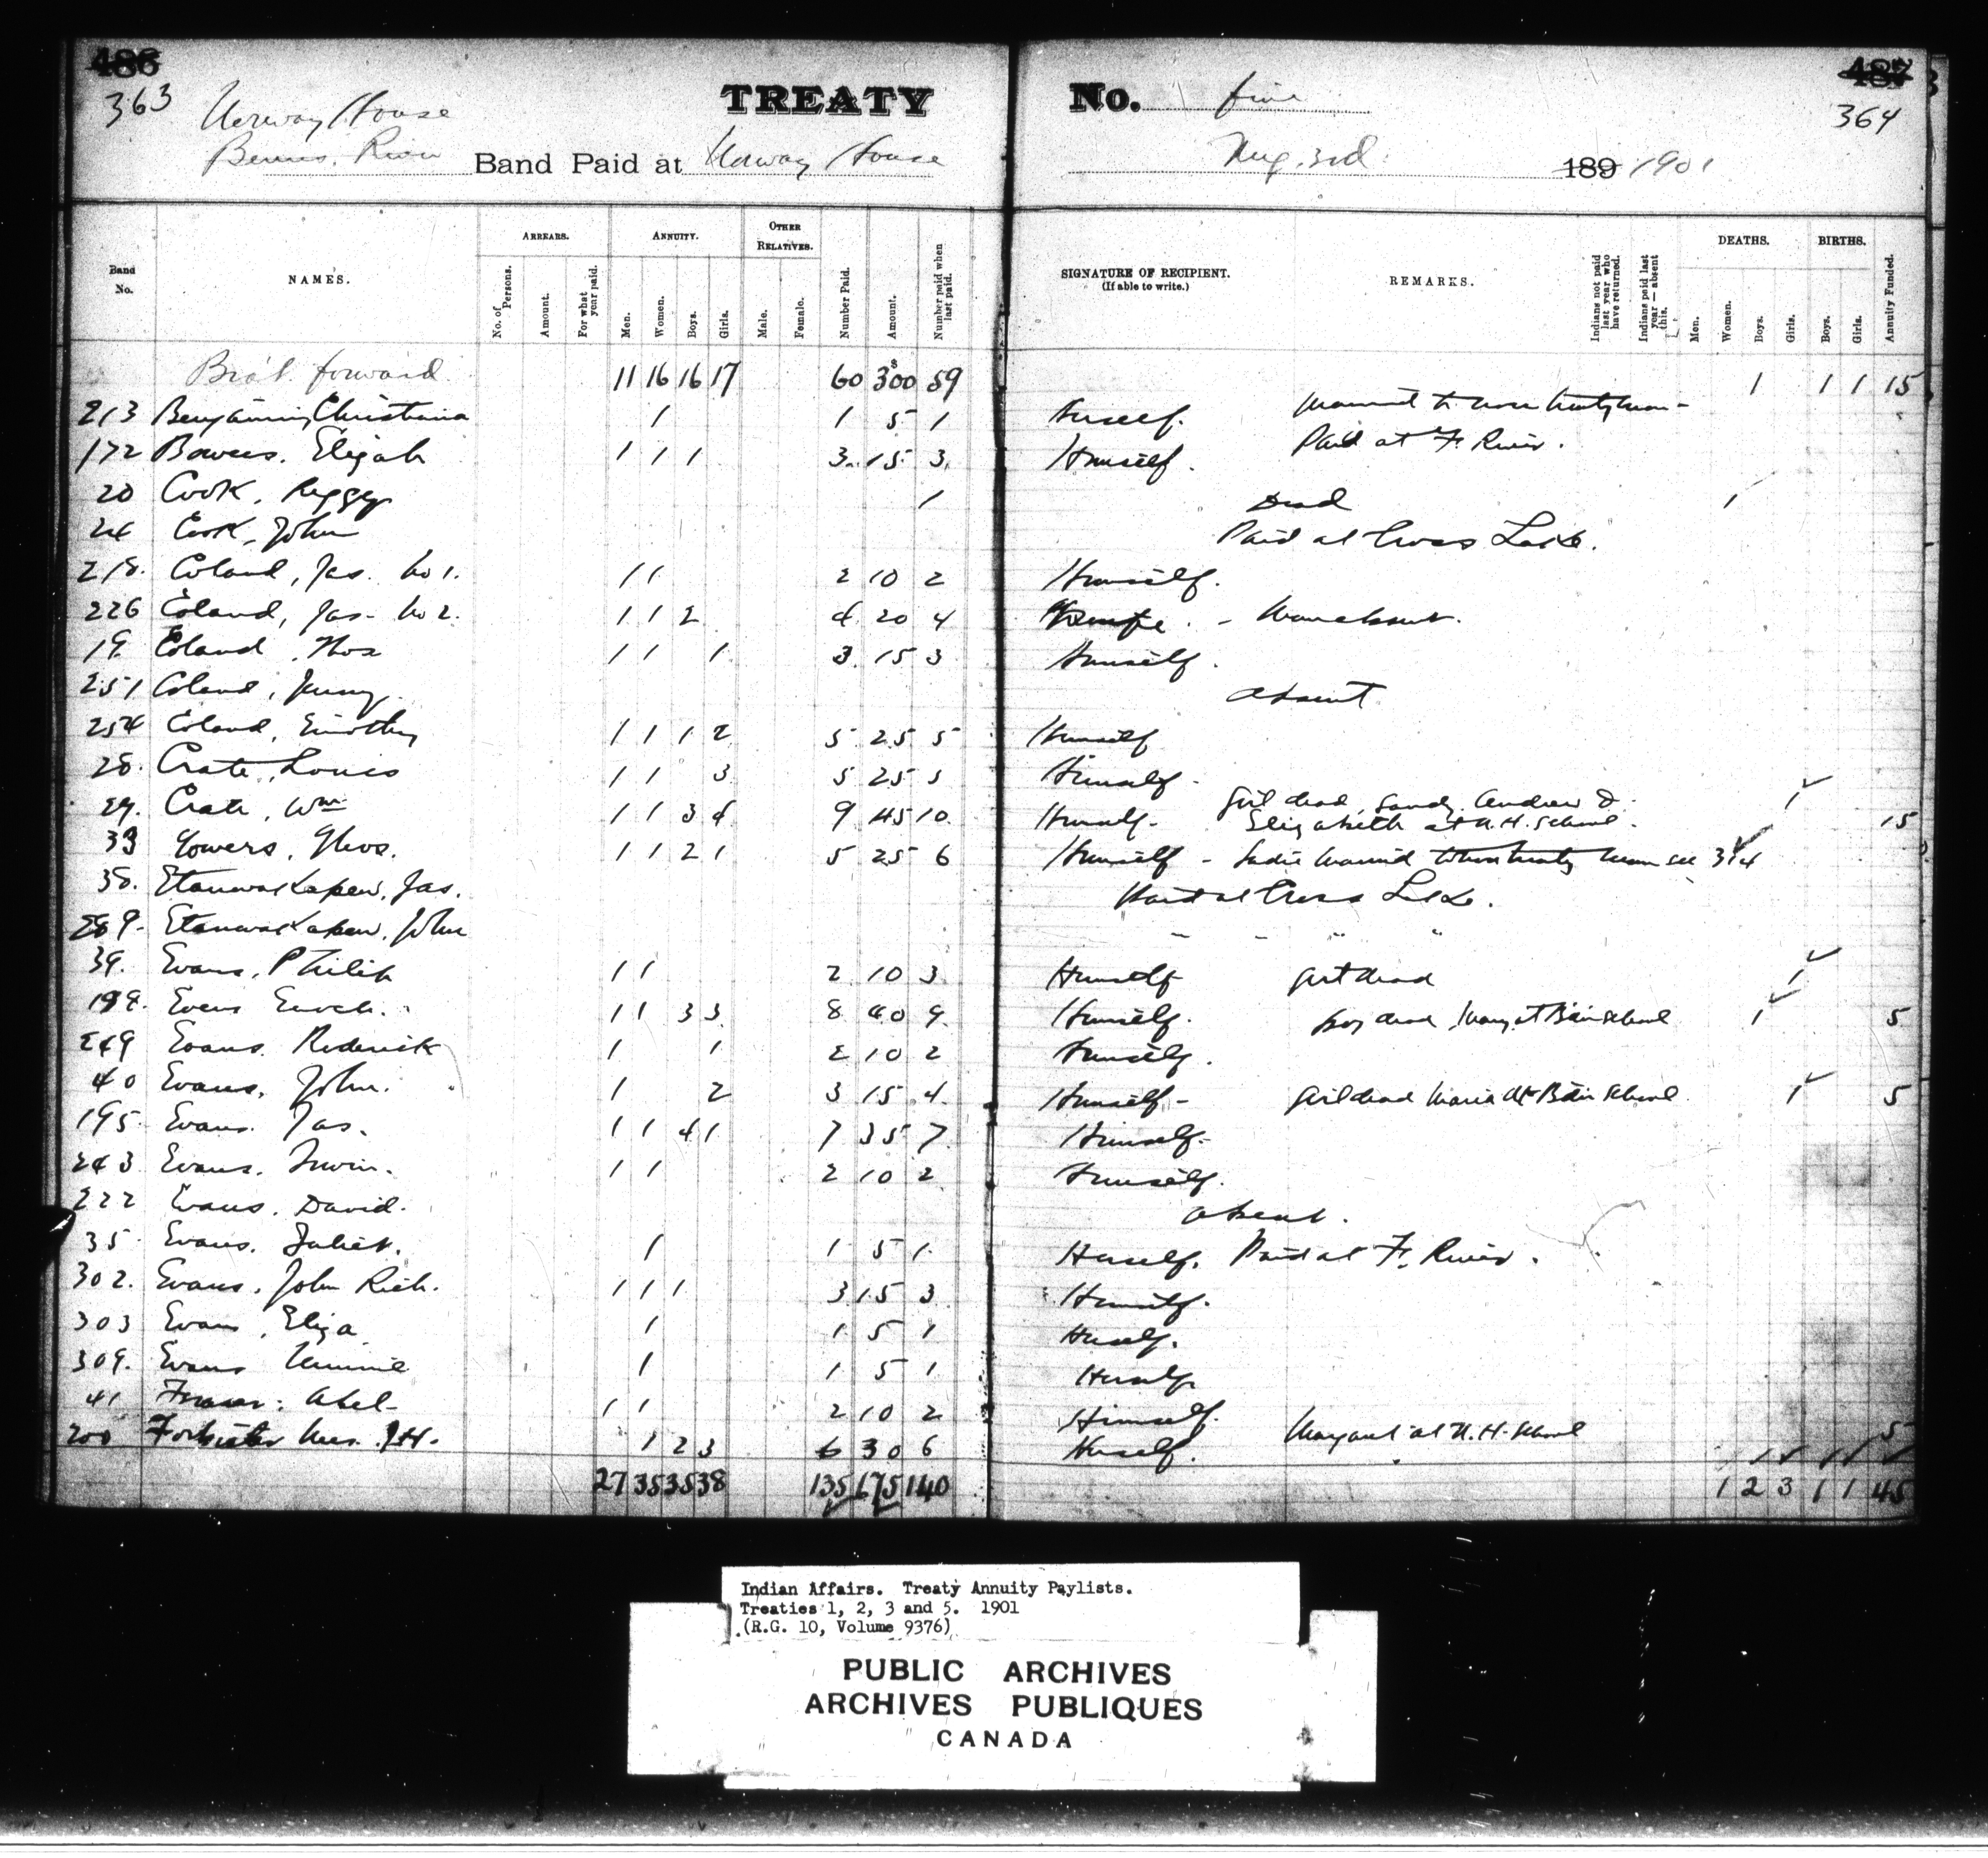 486 487
363 364
TREATY No. five
Norway House
Berens River Band Paid at Norway House Aug. 3rd. 189 1901
Band No. NAMES. ARREARS. No. of Persons. Amount. For what year paid. ANNUITY. Men. Women. Boys. Girls. OTHER RELATIVES. Male. Female. Number Paid. Amount. Number paid when last paid. SIGNATURE OF RECIPIENT. (If able to write.) REMARKS. Indians not paid last year who have returned. Indians paid last year — absent this. DEATHS. Men. Women. Boys. Girls. BIRTHS. Boys. Girls. Annuity Funded.
Bro't. forward 11 16 16 17 60 300 59 1 1 1 15
213 Benjamin, Christiana 1 1 5 1 Herself. Married to non treaty man
172 Bowers. Elijah 1 1 1 3 15 3 Himself. Paid at F. River.
20 Cook, Peggy 1 Dead 1
24 Cook, John Paid at Cross Lake.
218. Coland, Jas. No 1. 1 1 2 10 2 Himself.
226 Coland, Jas. No 2. 1 1 2 4 20 4 - Man absent.
19. Coland, Thos 1 1 1 3 15 3 Himself.
251 Coland, Jenny absent
254 Coland, Timothy 1 1 1 2 5 25 5 Himself
28. Crate, Louis 1 1 3 5 25 5 Himself
29. Crate, Wm 1 1 3 4 9 45 10 Himself. Girl dead, Sandy, Andrew & Elizabeth at N.H. School. 1 15
33 Yowers, Thos. 1 1 2 1 5 25 6 Himself - Sadie married to non treaty man see 314
38. Etawaskapew, Jas. Paid at Cross Lake.
289. Etawaskapew, John " " " "
39. Evans, Philip 1 1 2 10 3 Himself Girl dead 1
198. Evens Enoch. 1 1 3 3 8 40 9 Himself. Boy dead, Mary at B'din School 1 5
249 Evans. Roderick 1 1 2 10 2 Himself.
40 Evans, John. 1 2 3 15 4 Himself - Girl dead Maria at B'din School 1 5
195 Evans. Jas. 1 1 4 1 7 35 7 Himself.
243 Evans. Irwin. 1 1 2 10 2 Himself.
222 Evans. David. absent.
35 Evans. Juliet. 1 1 5 1 Herself. Paid at F. River.
302. Evans, John Rich. 1 1 1 3 15 3 Himself.
303 Evans, Eliza 1 1 5 1 Herself.
309. Evans Minnie 1 1 5 1 Herself
41 Fraser. Abel 1 1 2 10 2 Himself.
200 Forbister Mrs. J.H. 1 2 3 6 30 6 Herself. Margaret at N.H. School 5
27 35 35 38 135 675 140 1 2 3 1 1 45
Indian Affairs. Treaty Annuity Paylists.
Treaties 1, 2, 3 and 5. 1901
(R.G. 10, Volume 9376)
PUBLIC ARCHIVES
ARCHIVES PUBLIQUES
CANADA